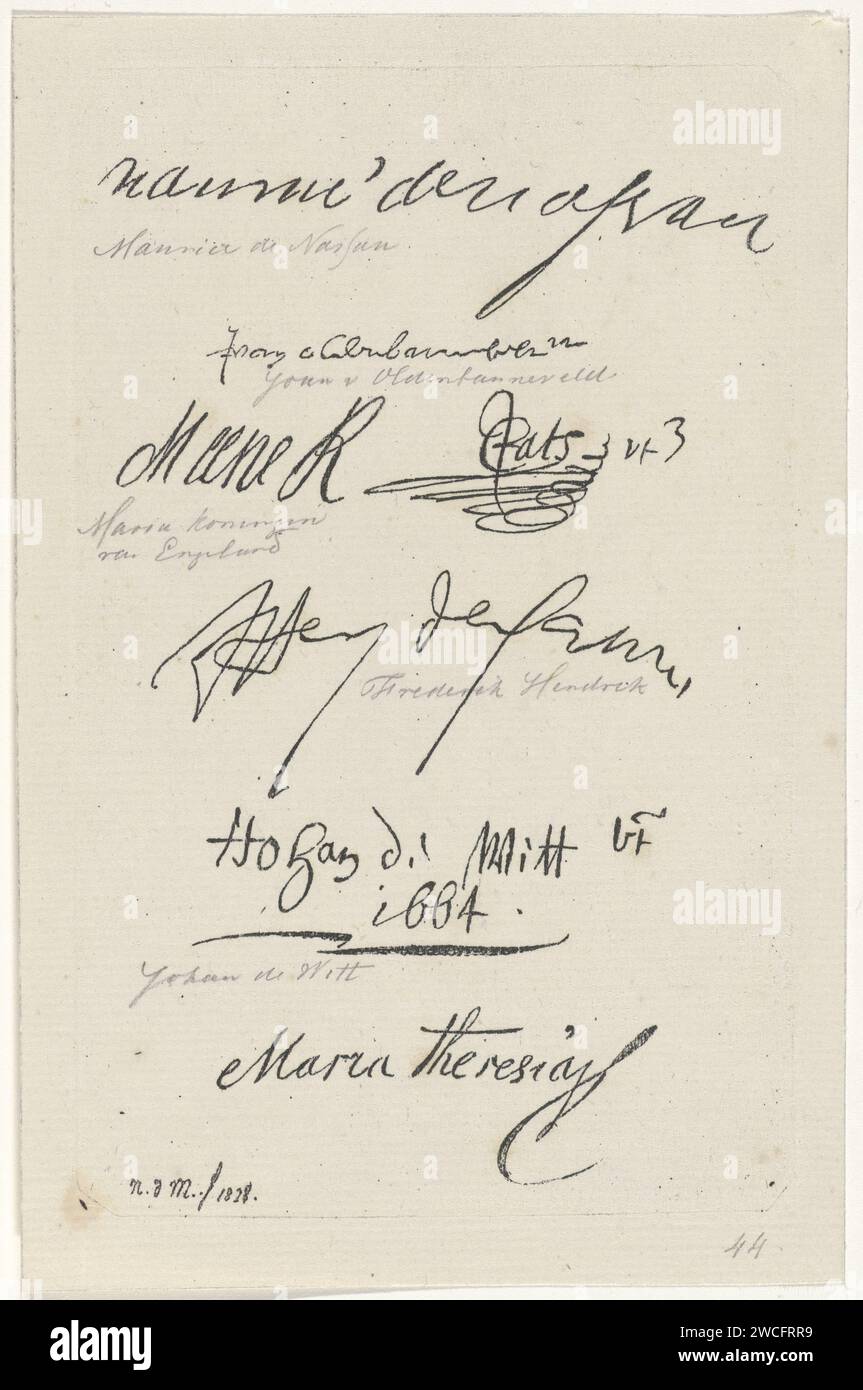 Maurice de Nassau
Maurice de Nassau
Joan v Oldenbarneveld
Marie R
Cats
Maria Koningin
van Engeland
Frederik Hendrik
Johan de Witt
1664.
Johan de Witt
Maria Theresia
n. d M. f 1828.
44
alamy
Image ID: 2WCFRR9
www.alamy.com